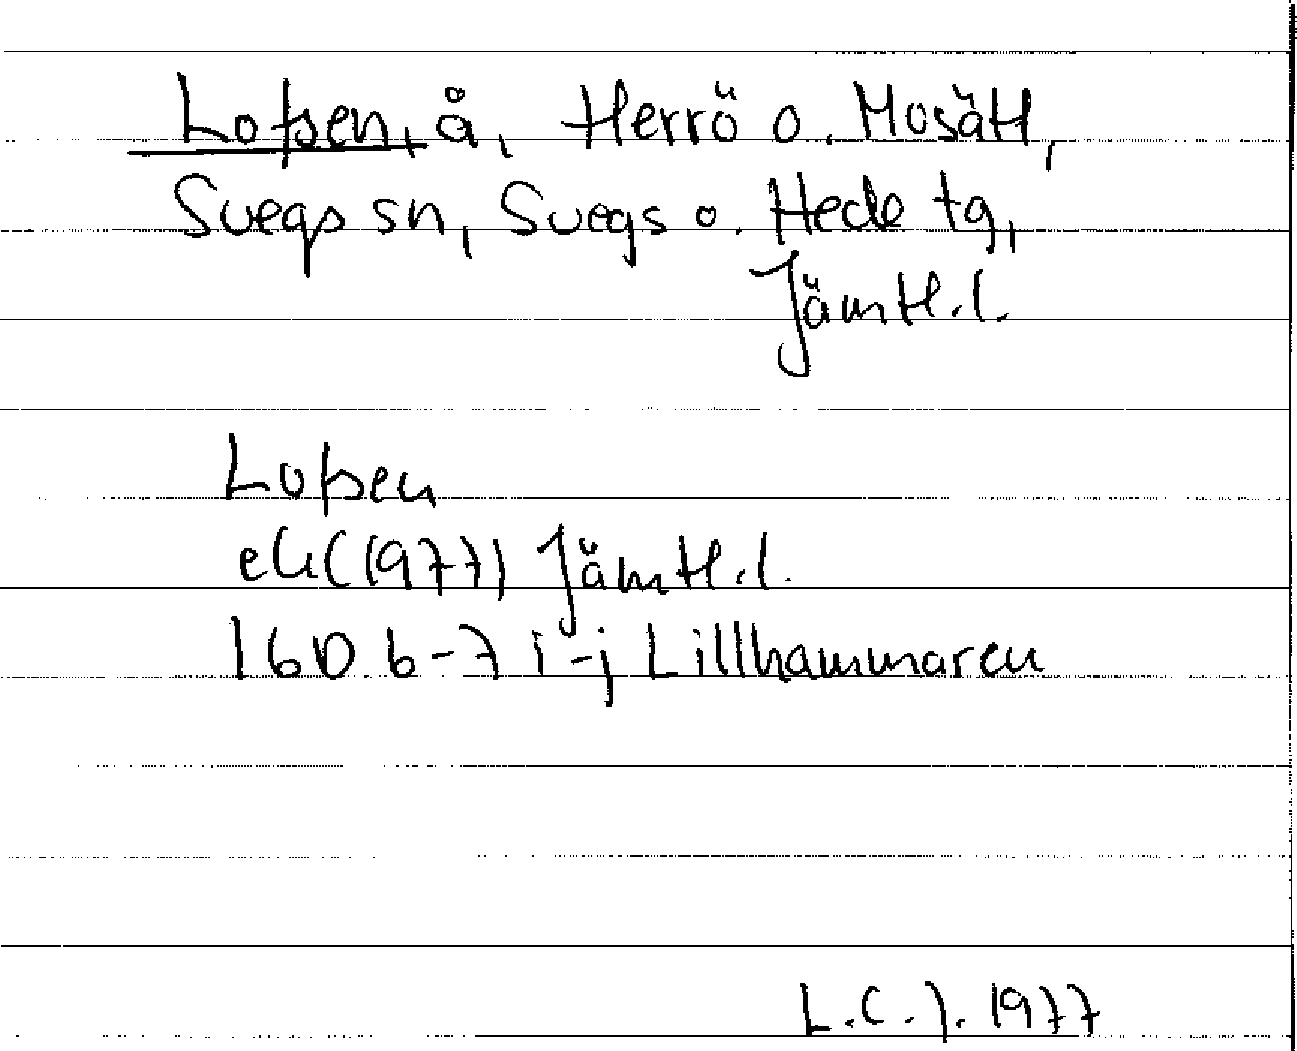 Lofsen, å, Herrö o. Mosätt,
Svegs sn, Svegs o. Hede tg,
Jämtl.l.
Lofsen
ek(1977) Jämtl.l.
16D 6-7 i-j Lillhammaren
L.C.J. 1977